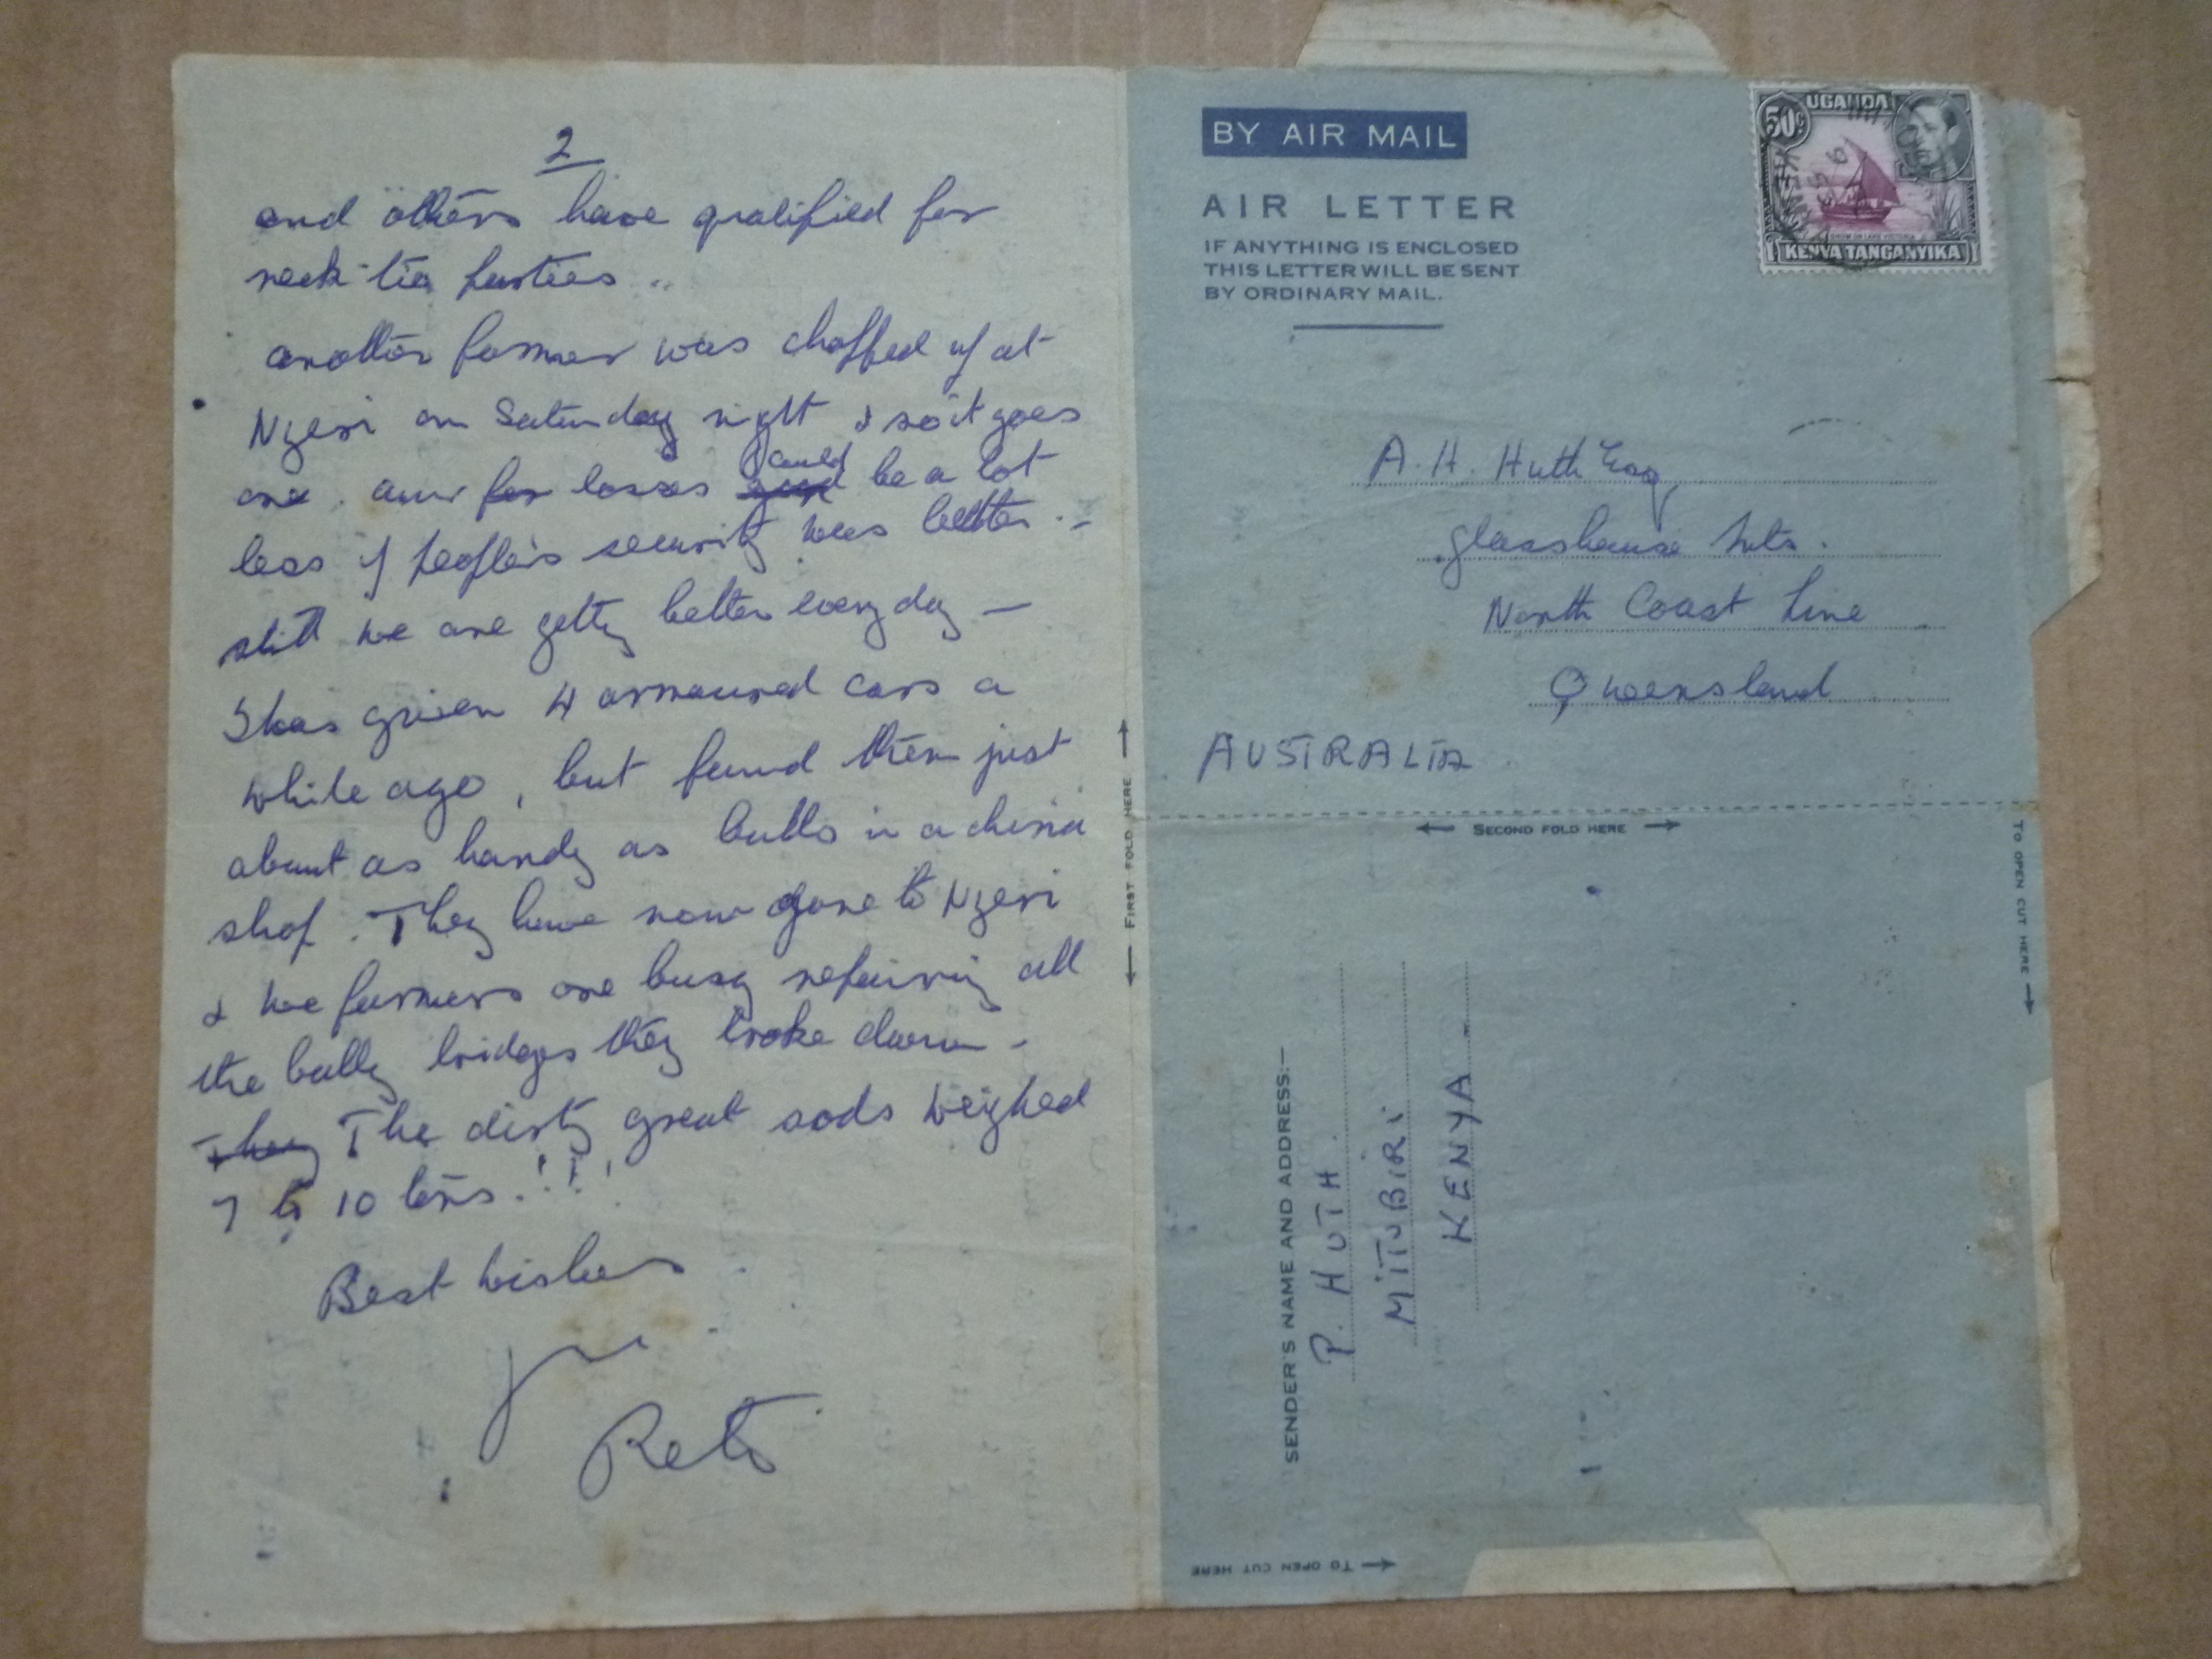 2
and others have qualified for
neck tie parties ..
another farmer was chopped up at
Nyeri on Saturday night & so it goes
one. our for losses could be a lot
less if people's security was better . -
still we are getting better every day -
I was given 4 armoured cars a
while ago, but found them just
about as handy as bulls in a china
shop. They have now gone to Nyeri
& we farmers are busy repairing all
the bally bridges they broke down -
They The dirty great sods weighed
7 to 10 tons. ! ! !
Best wishes
Reto
BY AIR MAIL
AIR LETTER
IF ANYTHING IS ENCLOSED
THIS LETTER WILL BE SENT
BY ORDINARY MAIL.
50c
UGANDA
KENYA TANGANYIKA
A. H. Huth Esq
Glasshouse Mts.
North Coast Line
Queensland
AUSTRALIA
← FIRST FOLD HERE →
← SECOND FOLD HERE →
TO OPEN CUT HERE →
SENDER'S NAME AND ADDRESS:—
P. HUTH.
MITUBIRI
KENYA
TO OPEN CUT HERE →